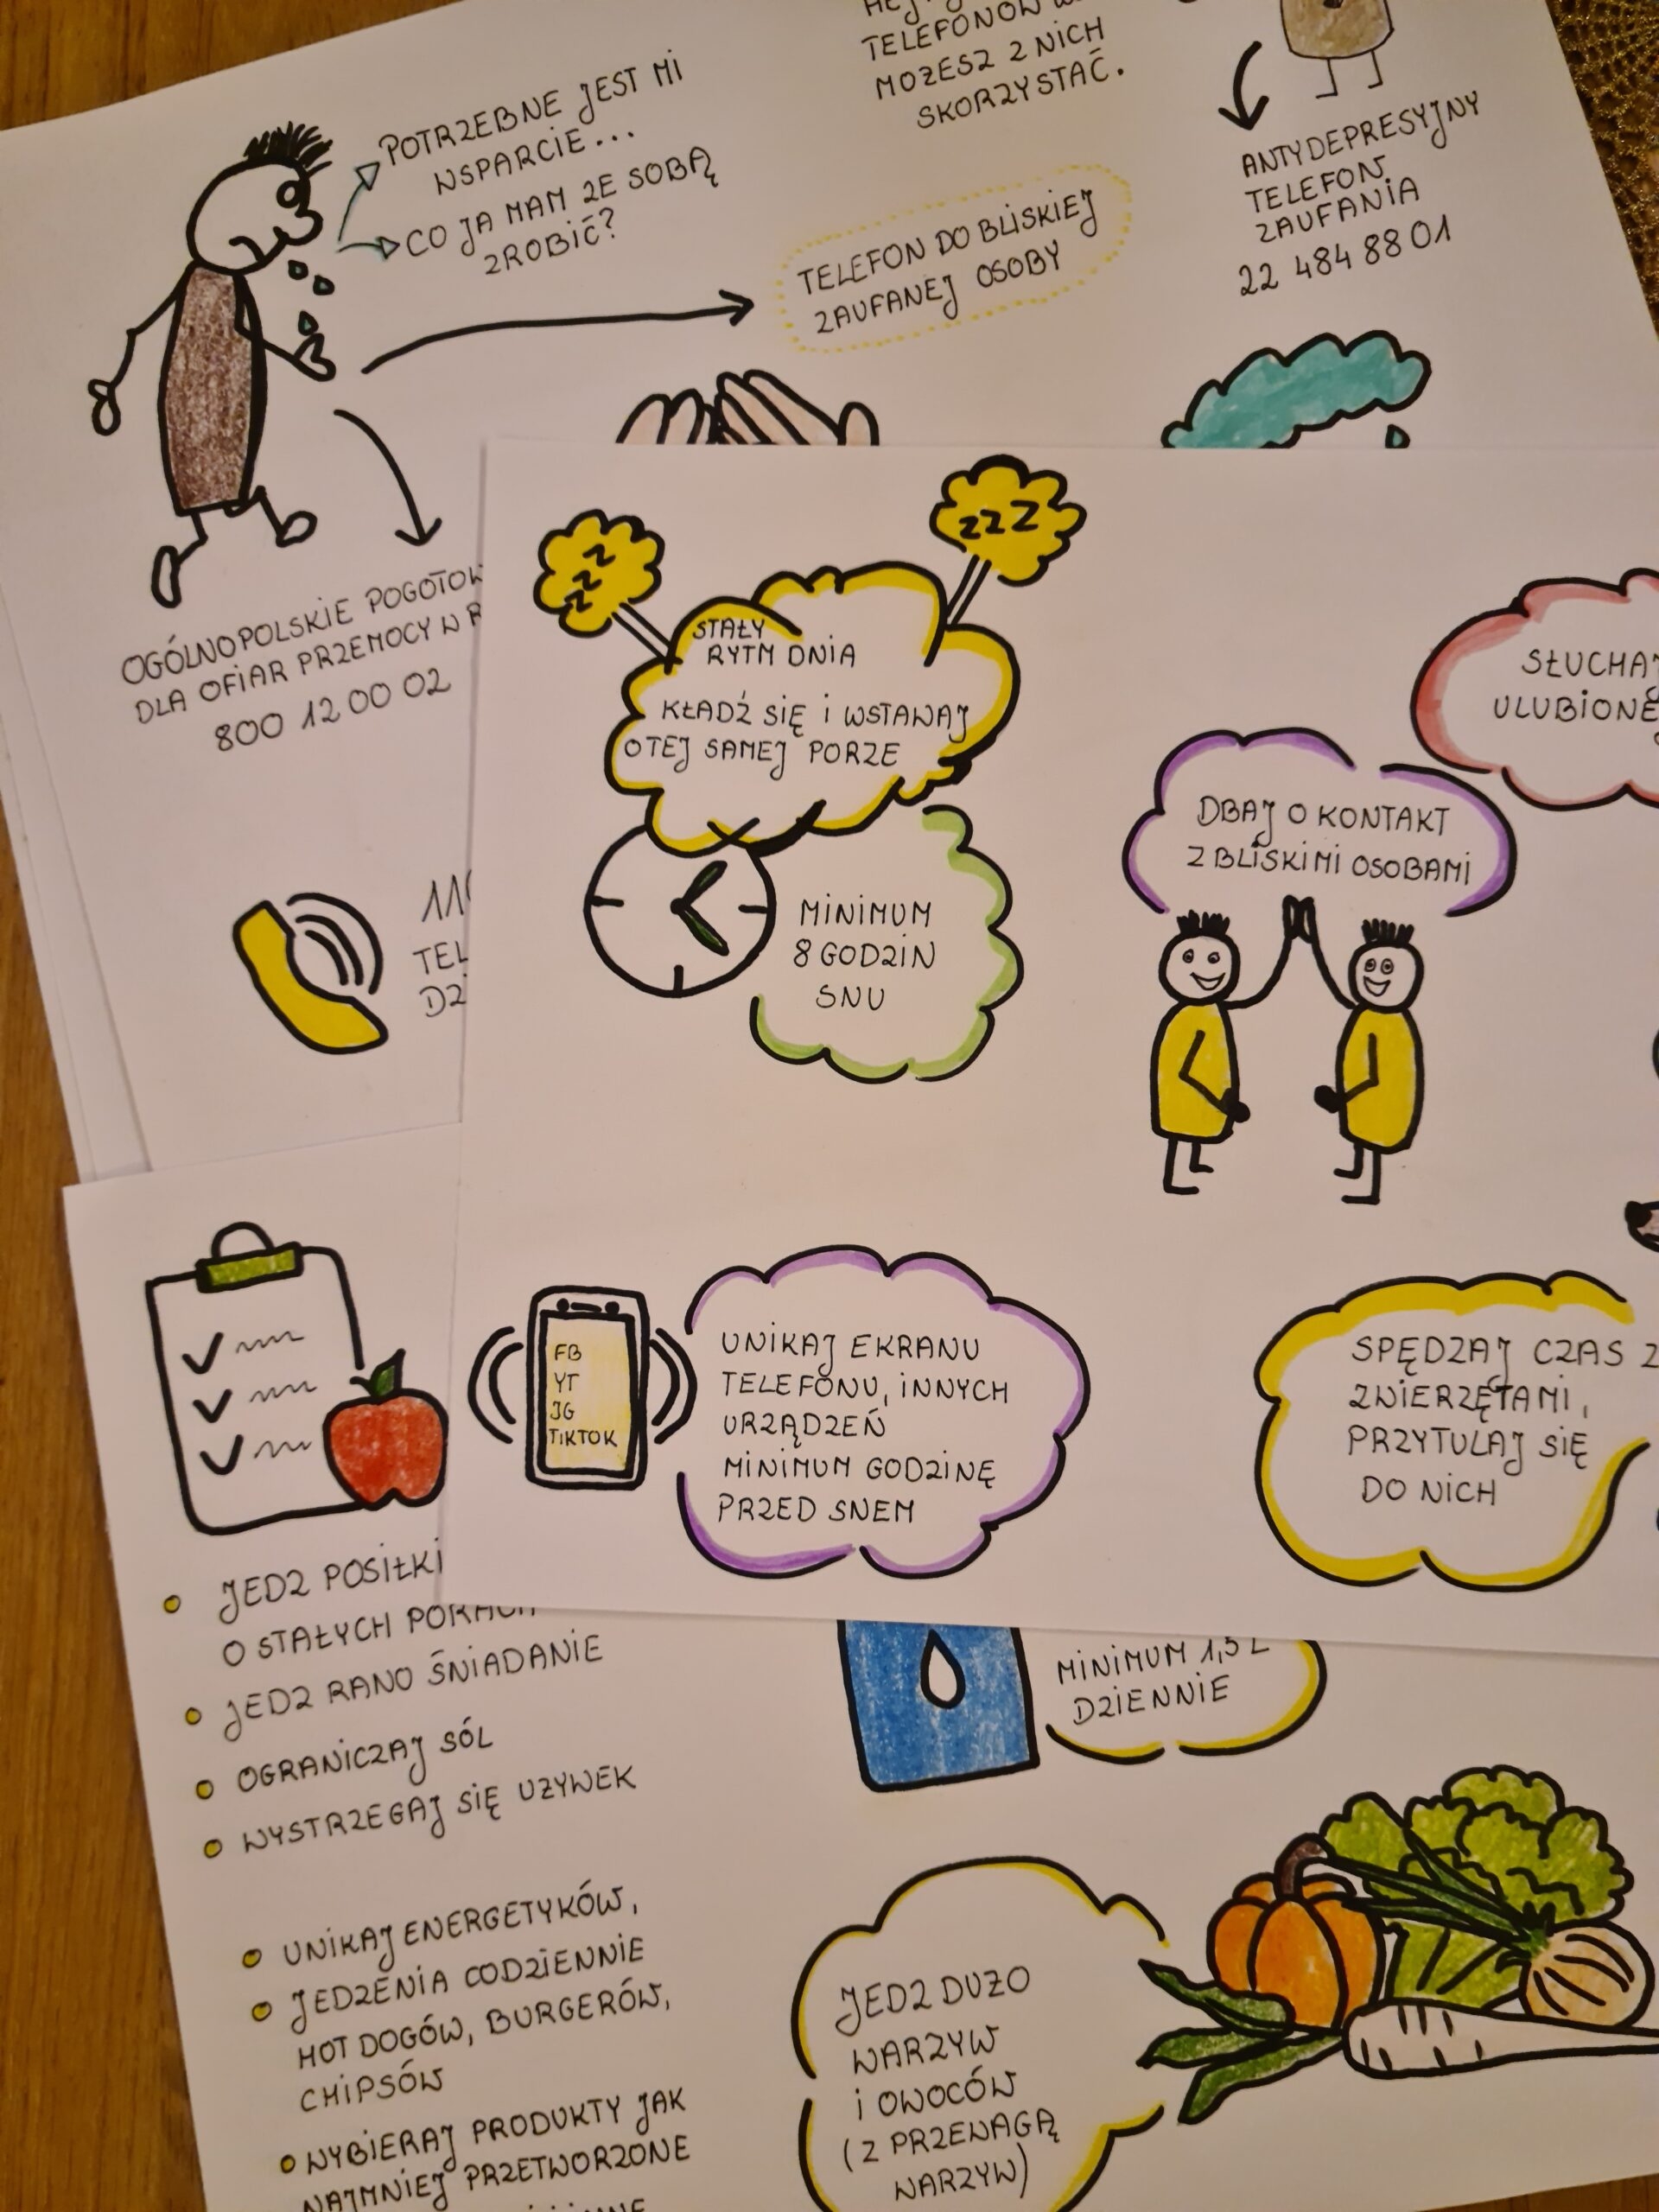 POTRZEBNE JEST MI
WSPARCIE...
CO JA MAM ZE SOBĄ
ZROBIĆ?
TELEFONÓW
MOŻESZ Z NICH
SKORZYSTAĆ.
ANTYDEPRESYJNY
TELEFON
ZAUFANIA
22 484 88 01
TELEFON DO BLISKIEJ
ZAUFANEJ OSOBY
OGÓLNOPOLSKIE
DLA OFIAR PRZEMOCY W
800 12 00 02
ZZZ
ZZZ
STAŁY
RYTM DNIA
KŁADŹ SIĘ I WSTAWAJ
O TEJ SAMEJ PORZE
MINIMUM
8 GODZIN
SNU
DBAJ O KONTAKT
Z BLISKIMI OSOBAMI
FB
YT
IG
TIKTOK
UNIKAJ EKRANU
TELEFONU, INNYCH
URZĄDZEŃ
MINIMUM GODZINĘ
PRZED SNEM
SPĘDZAJ CZAS Z
ZWIERZĘTAMI,
PRZYTULAJ SIĘ
DO NICH
JEDZ POSIŁKI
O STAŁYCH PORACH
JEDZ RANO ŚNIADANIE
OGRANICZAJ SÓL
WYSTRZEGAJ SIĘ UZYWEK
UNIKAJ ENERGETYKÓW,
JEDZENIA CODZIENNIE
HOT DOGÓW, BURGERÓW,
CHIPSÓW
WYBIERAJ PRODUKTY JAK
NAJMNIEJ PRZETWORZONE
MINIMUM 1,5 L
DZIENNIE
JEDZ DUZO
WARZYW
I OWOCÓW
(Z PRZEWAGĄ
WARZYW)